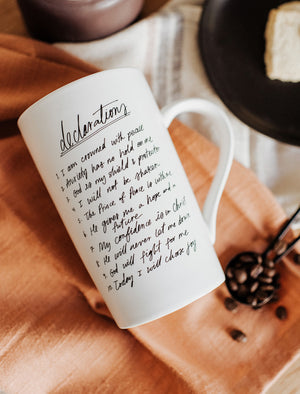 declarations
1. I am crowned with peace
2. Anxiety has no hold on me
3. God is my shield & protector
4. I will not be shaken
5. The Prince of Peace is with me
6. He gives me a hope and a
future
7. My confidence is in Christ
8. He will never let me down
9. God will fight for me
10. Today I will choose joy